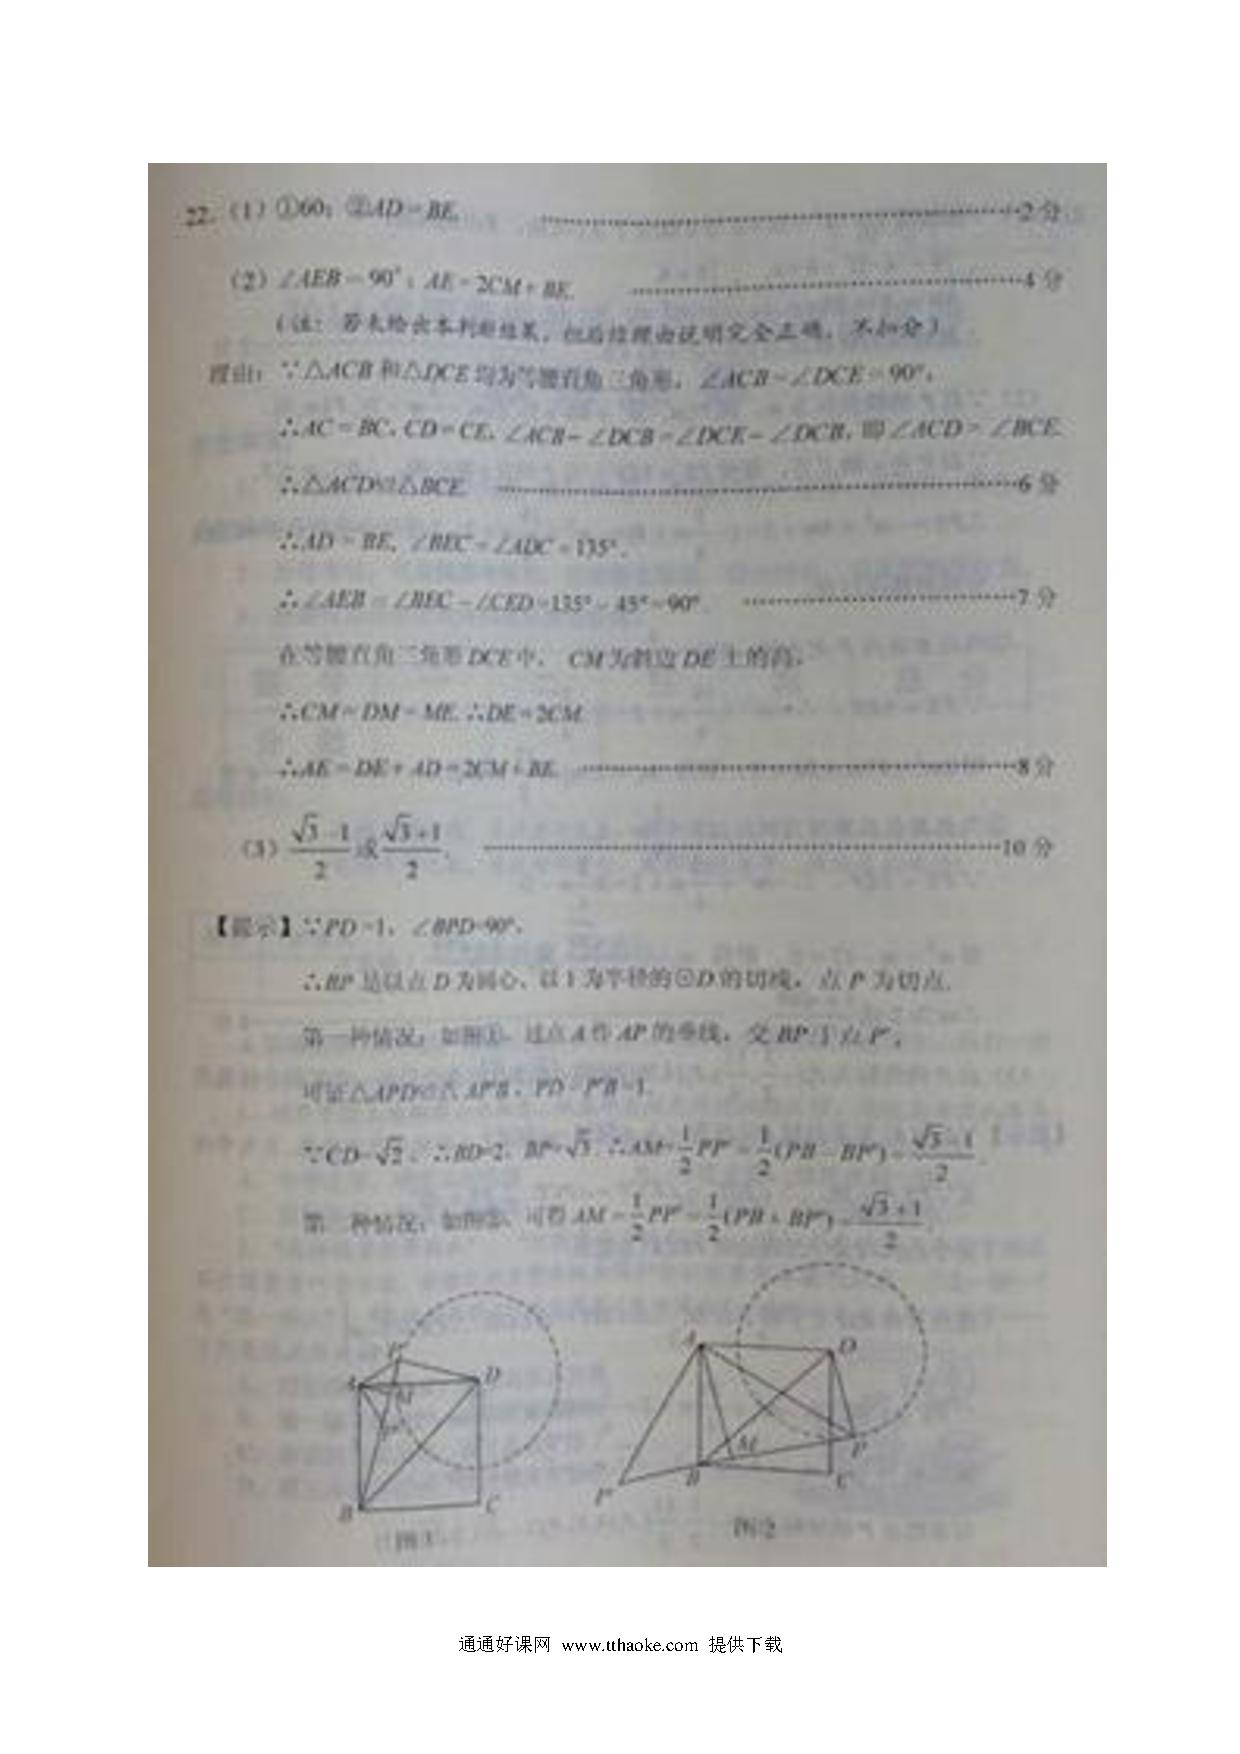 22.（1）①60；②AD=BE. ……2分
（2）∠AEB=90°；AE=2CM+BE. ……4分
（注：若未给出本判断结果，但后续理由说明完全正确，不扣分）
理由：∵△ACB和△DCE均为等腰直角三角形，∠ACB=∠DCE=90°，
∴AC=BC，CD=CE，∠ACB-∠DCB=∠DCE-∠DCB，即∠ACD=∠BCE.
∴△ACD≌△BCE. ……6分
∴AD=BE，∠BEC=∠ADC=135°.
∴∠AEB=∠BEC-∠CED=135°-45°=90°. ……7分
在等腰直角三角形DCE中，CM为斜边DE上的高，
∴CM=DM=ME. ∴DE=2CM.
∴AE=DE+AD=2CM+BE. ……8分
（3）(√3-1)/2或(√3+1)/2. ……10分
【提示】∵PD=1，∠BPD=90°，
∴BP是以点D为圆心、以1为半径的⊙D的切线，点P为切点.
第一种情况：如图①，过点A作AP的垂线，交BP于点P′，
可证△APD≌△AP′B，PD=P′B=1.
∵CD=√2，∴BD=2，BP=√3. ∴AM=1/2PP′=1/2(PB-BP′)=(√3-1)/2.
第二种情况：如图②，可得AM=1/2PP′=1/2(PB+BP′)=(√3+1)/2.
P
A
D
M
P′
B
C
图①
A
D
M
P
B
C
P′
图②
通通好课网 www.tthaoke.com 提供下载